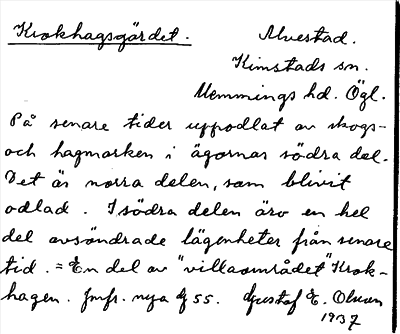 Krokhagsgärdet. Alvestad.
Kimstads sn.
Memmings hd. Ögl.
På senare tider uppodlat av skogs-
och hagmarken i ägornas södra del.
Det är norra delen, som blivit
odlad. I södra delen äro en hel
del avsöndrade lägenheter från senare
tid. = En del av "villaområdet" Krok-
hagen. Jmfr. nya 55. Gustaf E. Olsson
1937